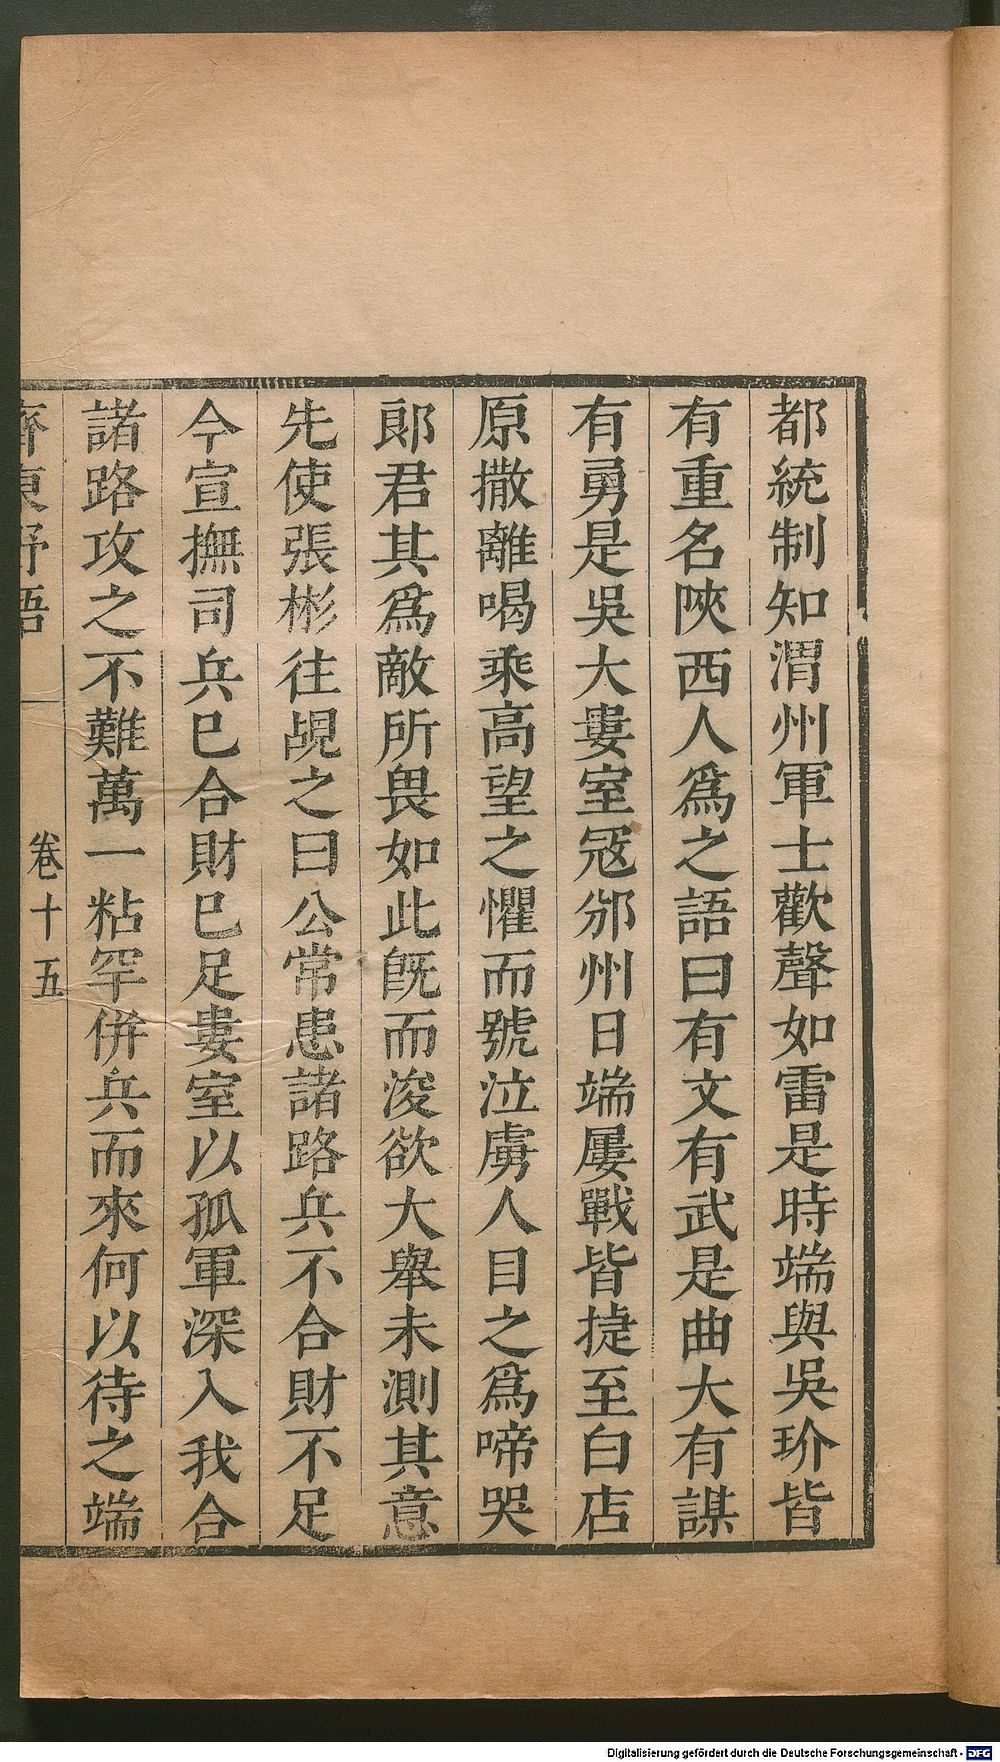 都統制知渭州軍士歡聲如雷是時端與吳玠皆
有重名陝西人爲之語曰有文有武是曲大有謀
有勇是吳大婁室㓂邠州日端屢戰皆捷至白店
原撒離喝乘高望之懼而號泣虜人目之爲啼哭
郞君其爲敵所畏如此旣而浚欲大舉未測其意
先使張彬往覘之曰公常患諸路兵不合財不足
今宣撫司兵巳合財巳足婁室以孤軍深入我合
諸路攻之不難萬一粘罕併兵而來何以待之端
齊東野語
卷十五
Digitalisierung gefördert durch die Deutsche Forschungsgemeinschaft - DFG